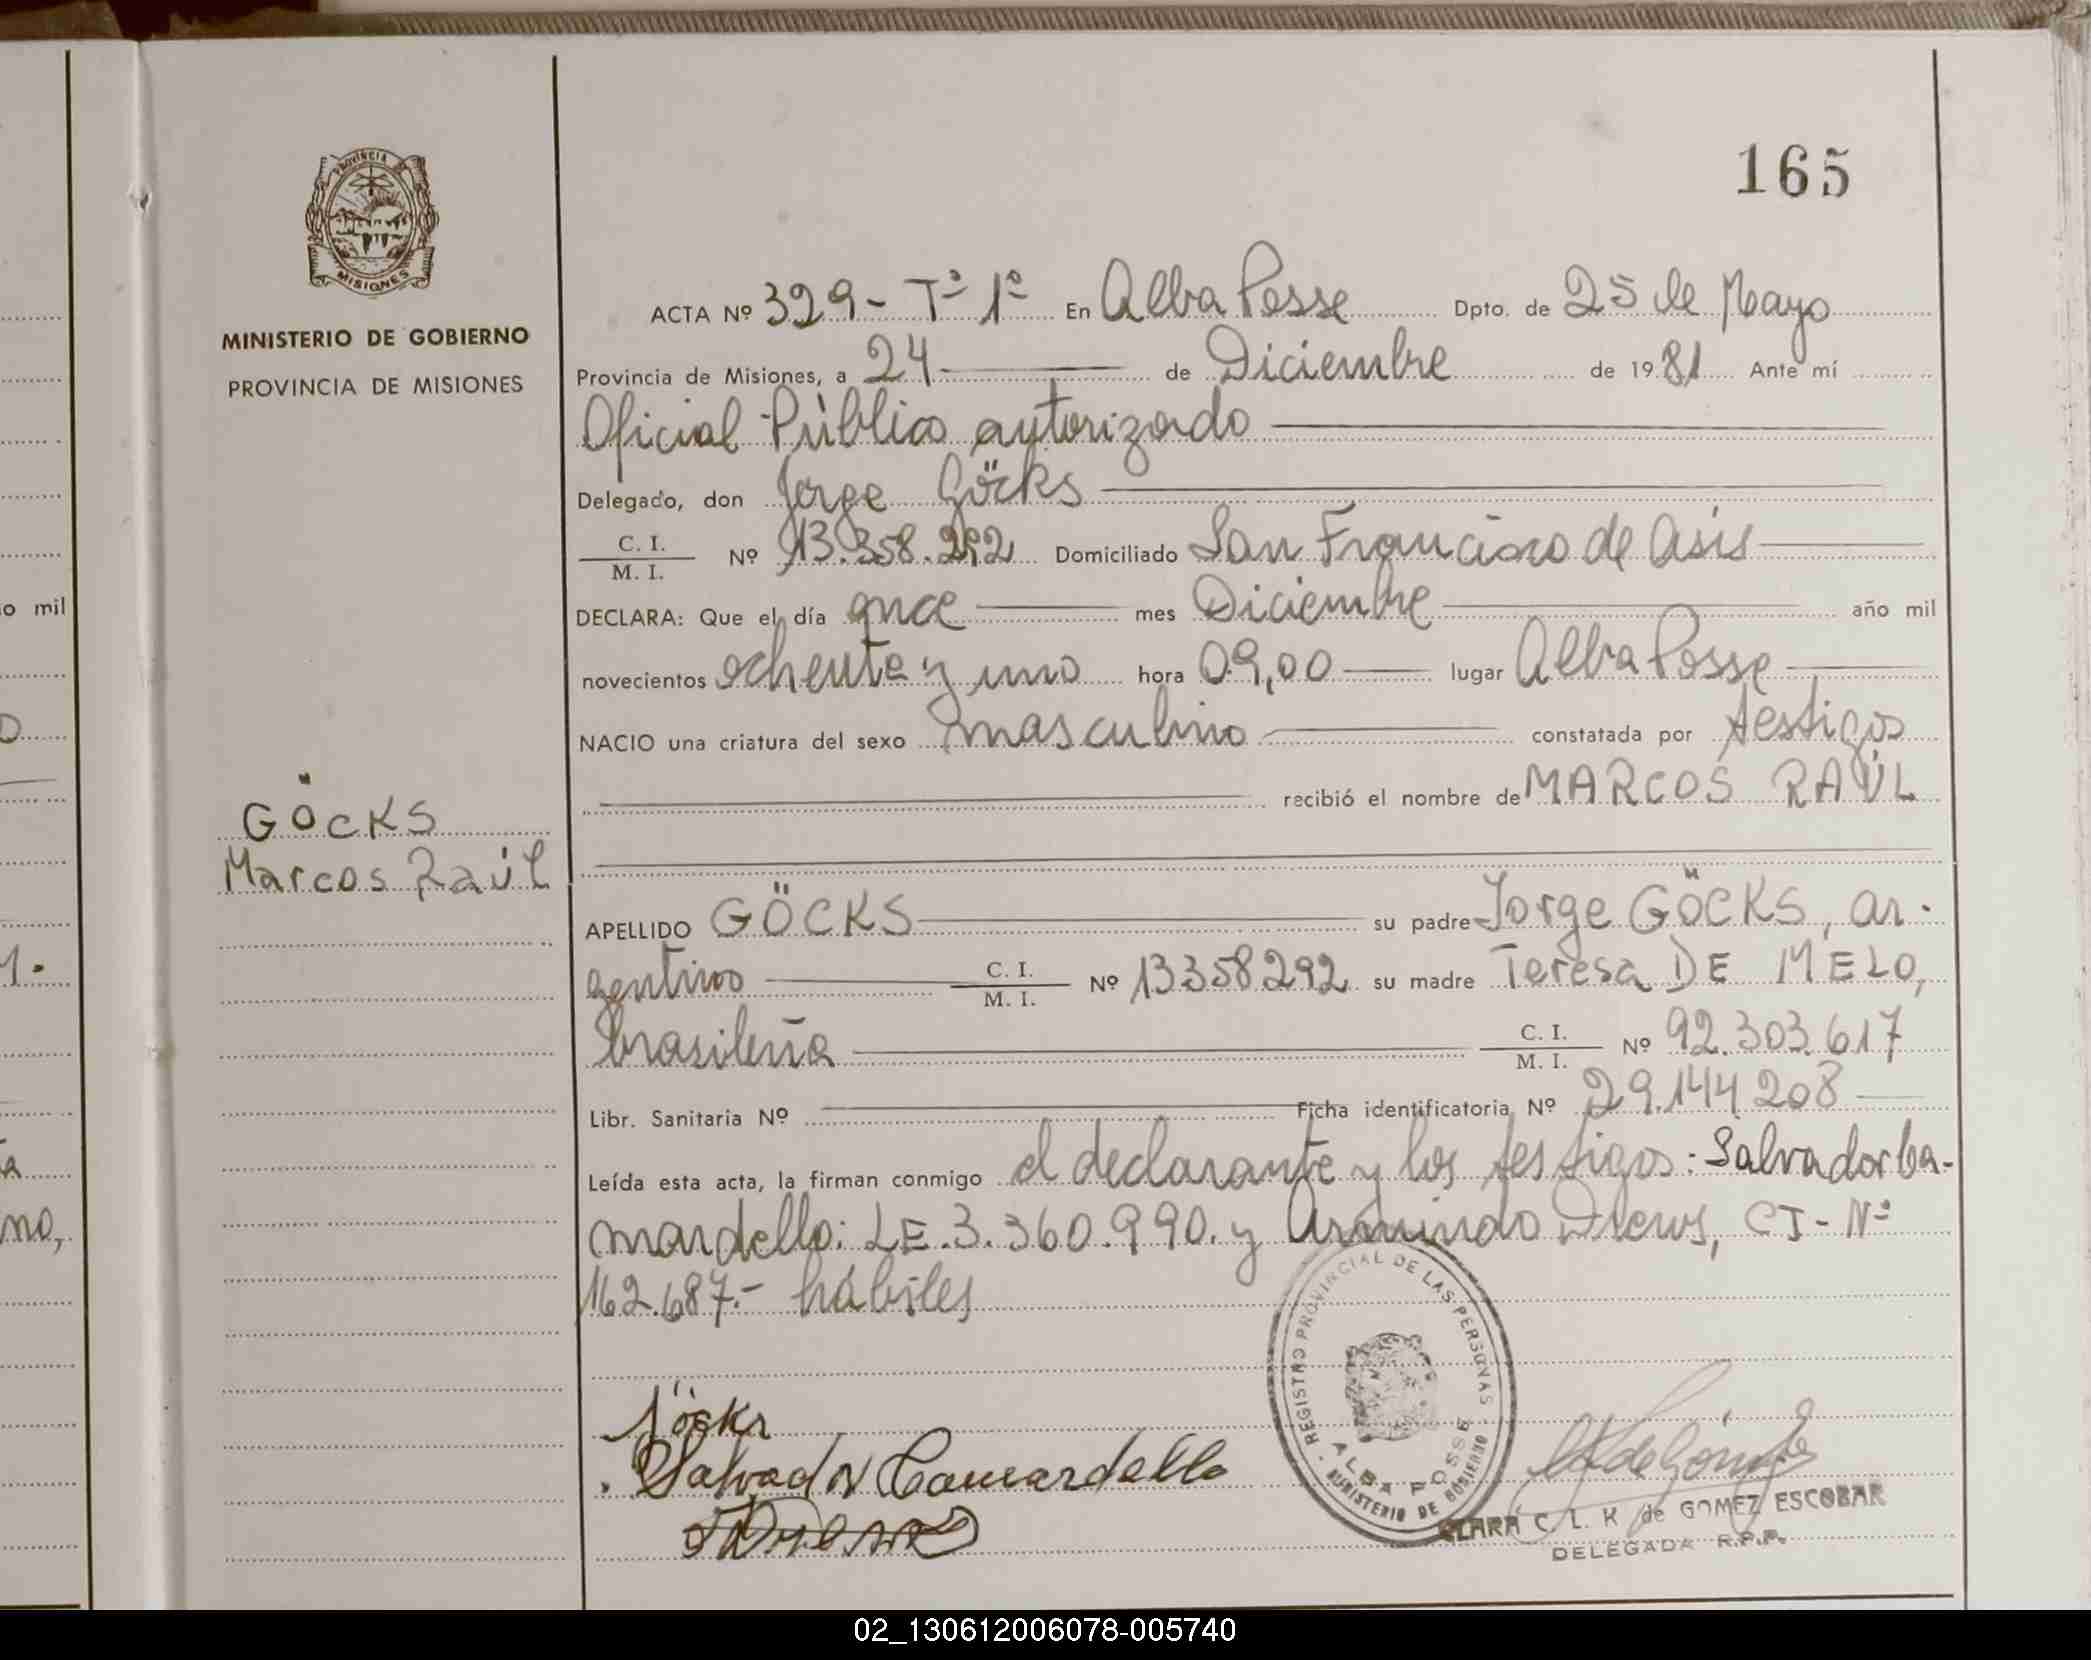 165
PROVINCIA
MISIONES
MINISTERIO DE GOBIERNO
PROVINCIA DE MISIONES
GÖCKS
Marcos Raúl
ACTA Nº 329- Tº 1º En Alba Posse Dpto. de 25 de Mayo
Provincia de Misiones, a 24 de Diciembre de 1981 Ante mí
Oficial Público autorizado
Delegado, don Jorge Göcks
C. I.
M. I. Nº 13.358.292 Domiciliado San Francisco de Asis
DECLARA: Que el día once mes Diciembre año mil
novecientos ochenta y uno hora 09,00 lugar Alba Posse
NACIO una criatura del sexo masculino constatada por testigos
recibió el nombre de MARCOS RAÚL
APELLIDO GÖCKS su padre Jorge GÖCKS, ar-
gentino C. I. M. I. Nº 13358292 su madre Teresa DE MELO,
brasileña C. I. M. I. Nº 92.303.617
Libr. Sanitaria Nº Ficha identificatoria Nº 29.144.208
Leída esta acta, la firman conmigo el declarante y los testigos: Salvador Ca-
mardello: LE.3.360.990. y Armindo Drews, CI- Nº
162.687.- hábiles
REGISTRO PROVINCIAL DE LAS PERSONAS
ALBA POSSE
MINISTERIO DE GOBIERNO
Göcks
Salvador Camardello
CLARA C. L. K. de GOMEZ ESCOBAR
DELEGADA R.P.P.
o mil
no,
02_130612006078-005740